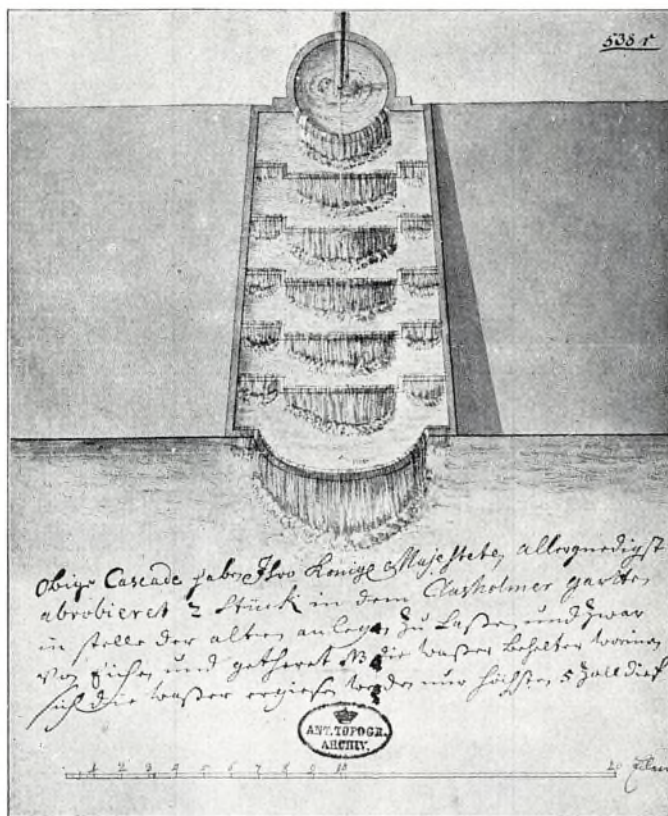 538 r
Obige Cascade haben Ihro Königl Majestete, allergnedigst
abrobieret 2 Stück in dem Clausholmer gartten
in stelle der alten anlegen zu Laßen und zwar
von Eichen und getheret NB die waßer behelter worinen
sich die waßer ergießen werden nur höchsten 5 Zoll dief
ANT. TOPOGR.
ARCHIV.
1 2 3 4 5 6 7 8 9 10 20